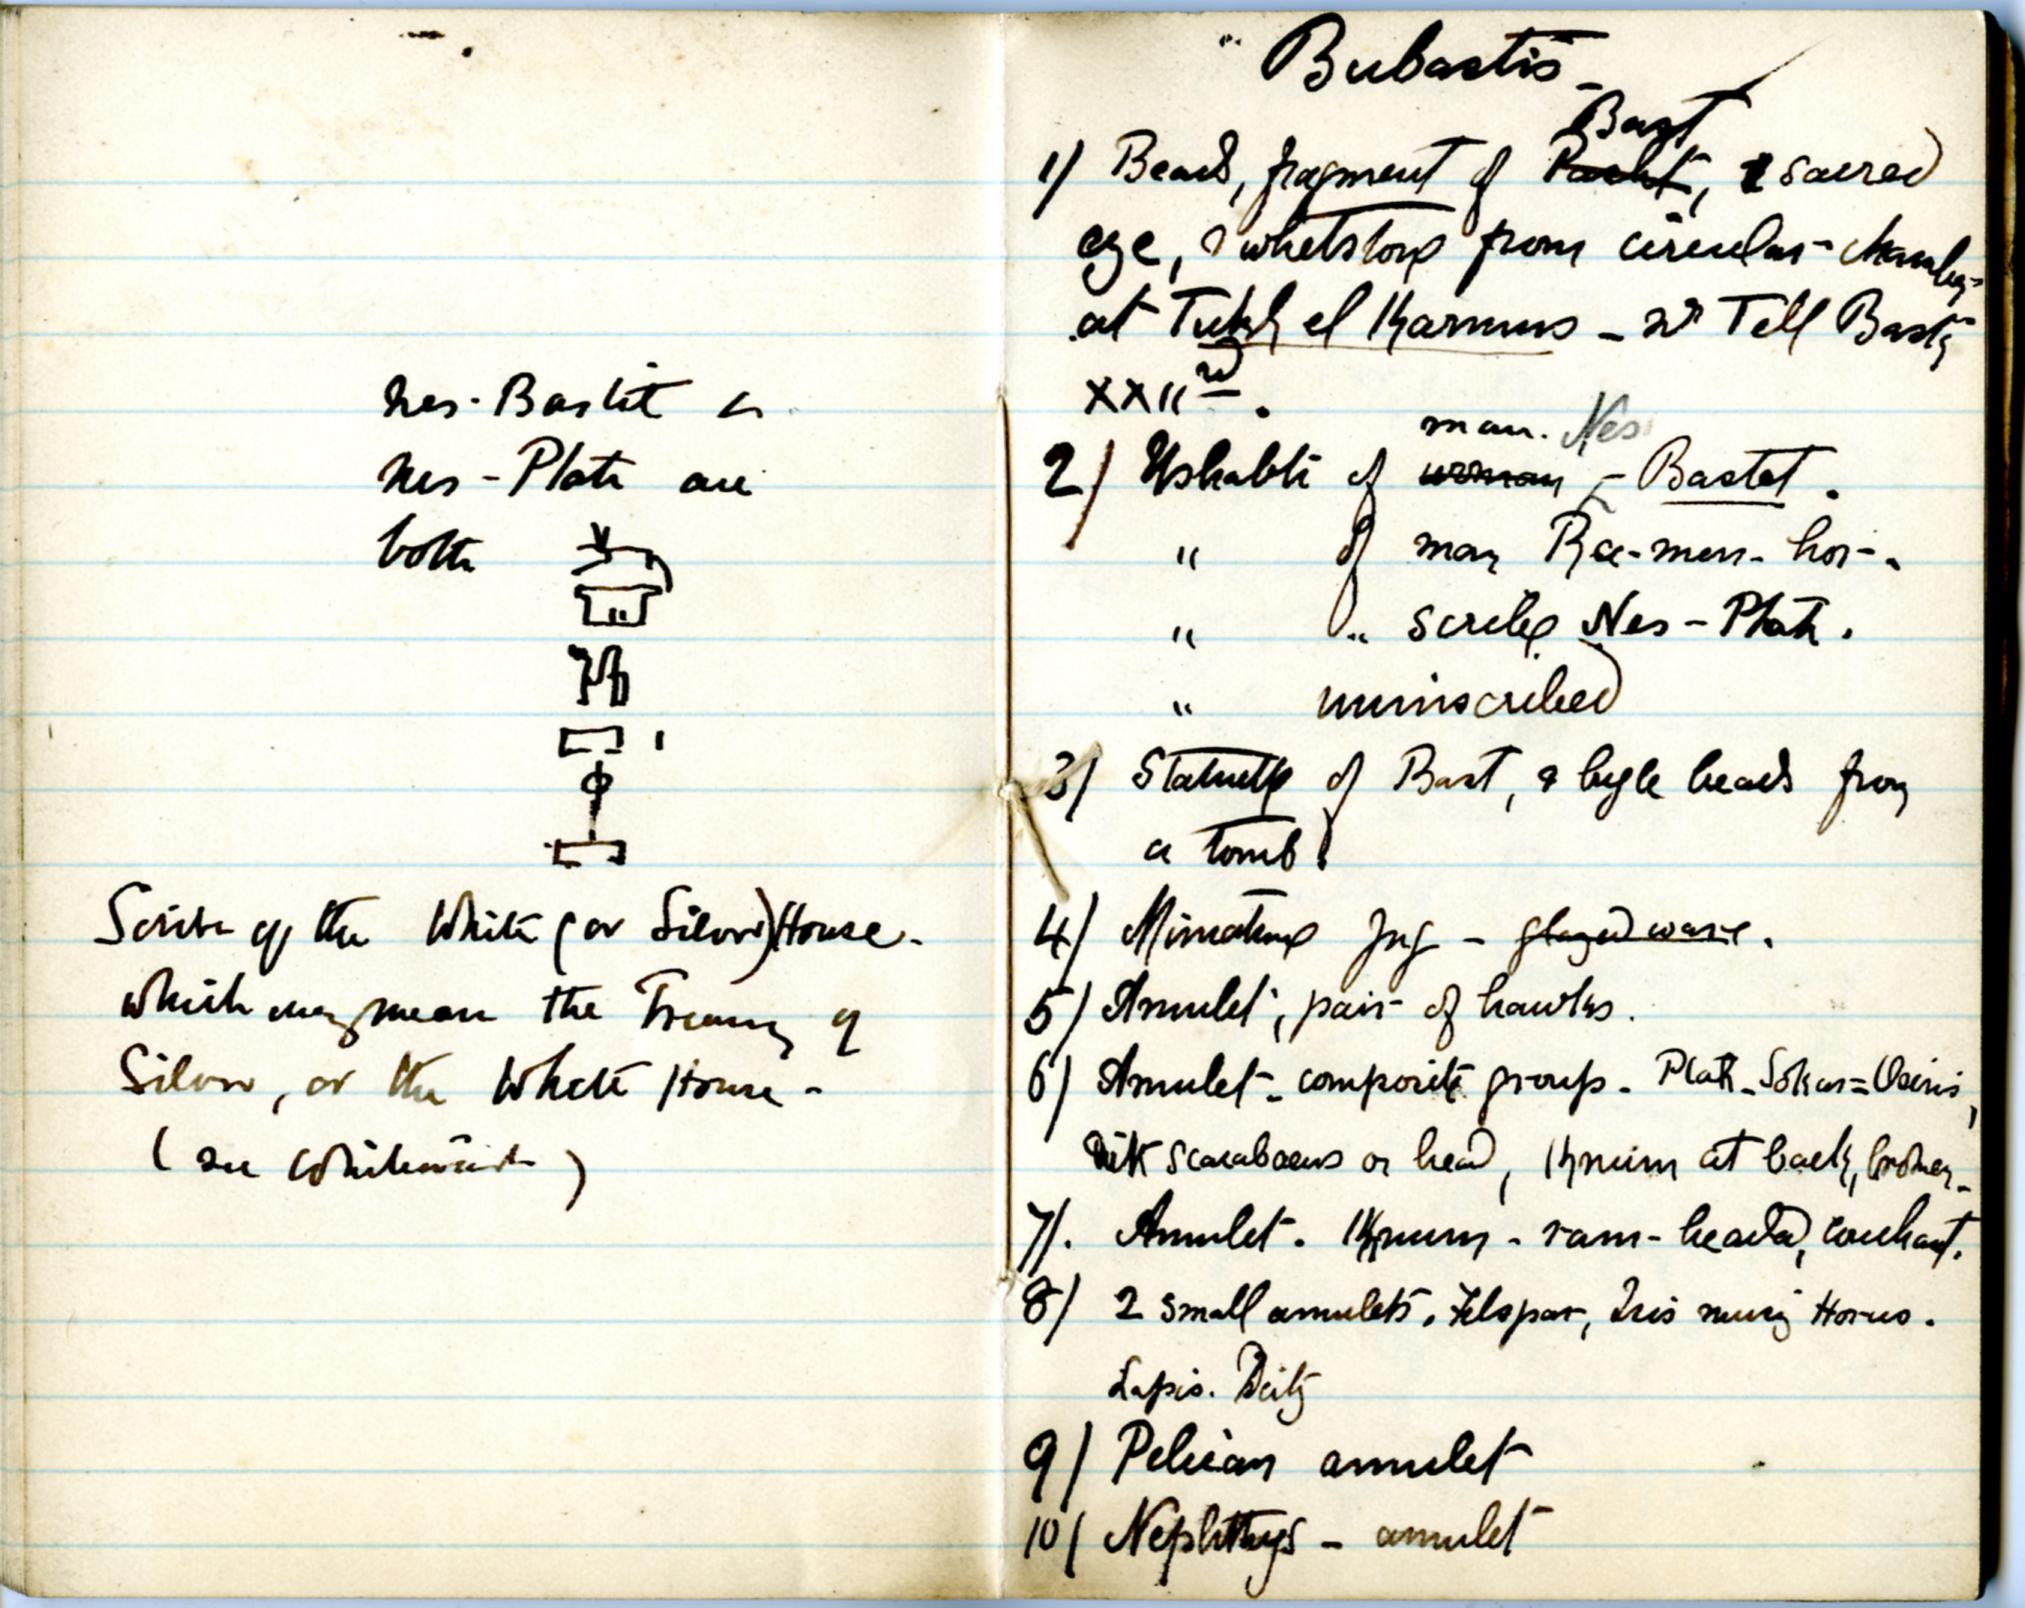 Nes-Bastit &
Nes-Ptah are
both
Scribe of the White (or Silver) House.
which may mean the Treasury of
Silver, or the White House -
( see )
" Bubastis -
Bast
1) Beads, fragment of Pasht, & sacred
eye, & whetstone from circular chamber
at Tukh el Karmus - nr Tell Basta
XXIInd.
man. Nes
2) Ushabti of woman - Bastet.
" of man Ra-men-hor-.
" " scribe Nes-Ptah.
" uninscribed
3) Statuette of Bast, & bugle beads from
a tomb.
4) Miniature Jug - glazed ware.
5) Amulet, pair of hawks.
6) Amulet - composite group. Ptah-Sokar=Osiris,
with scarabaeus on head, Knum at back, broken.
7). Amulet. Khnum - ram-headed, couchant.
8) 2 small amulets. Felspar, Isis nursing Horus.
Lapis. Deity
9) Pelican amulet
10) Nephthys - amulet